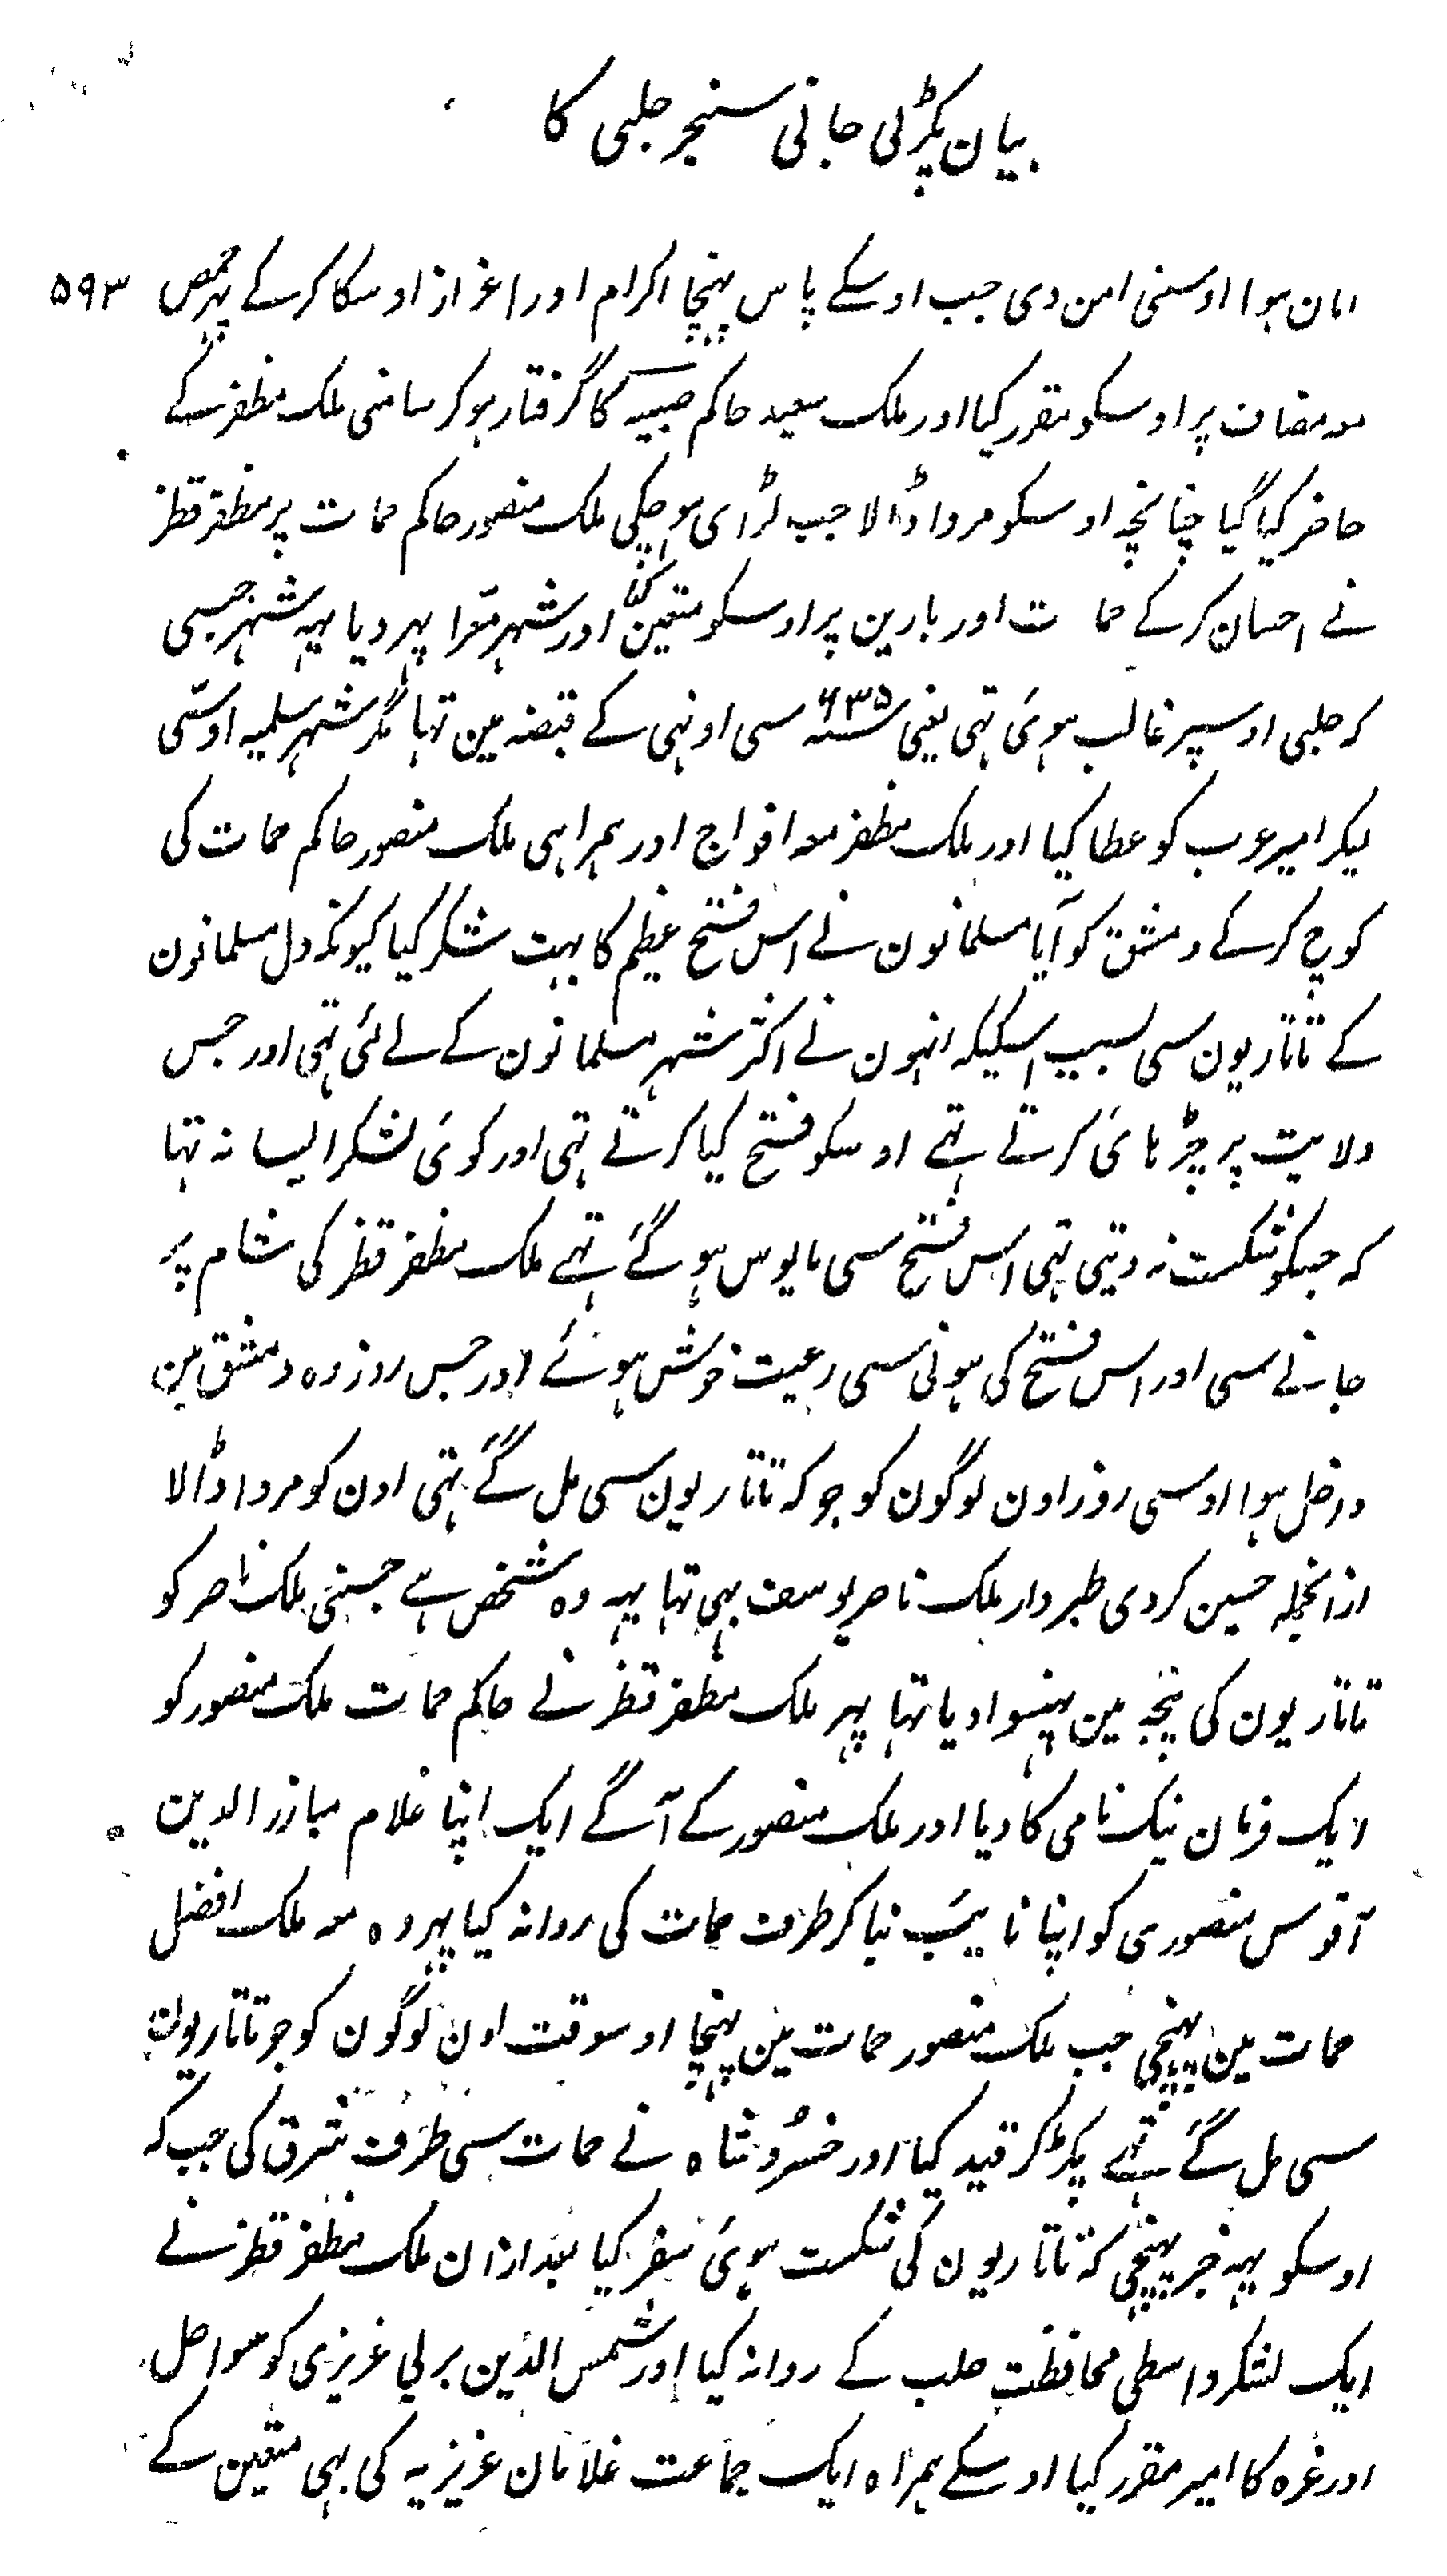 بیان پکڑلی جانی سنجر حلبی کا
امان ہوا اوسنی امن دی جب اوسکے پاس پہنچا اکرام اور اعزاز اوسکا کرکے پہر حمص ۵۹۳
معہ مضاف پر اوسکو مقرر کیا اور ملک سعید حاکم صبیبہ کا گرفتار ہوکر سامنی ملک مظفر کے
حاضر کیا گیا چنانچہ اوسکو مروا ڈالا جب لڑای ہو چکی ملک منصور حاکم حمات پر مظفر قطز
نے احسان کرکے حمات اور بارین پر اوسکو متعین کیا اور شہر معّرا پہر دیا یہہ شہر جبسی
کہ حلبی اوسپر غالب ہوئی تہی یعنی سنہ ۶۳۵ سی اونہی کے قبضہ مین تہا مگر شہر سلمیہ اوسّی
لیکر امیر عرب کو عطا کیا اور ملک مظفر معہ افواج اور ہمراہی ملک منصور حاکم حمات کی
کوچ کرکے دمشق کو آیا مسلمانون نے اس فتح عظیم کا بہت شکر کیا کیونکہ دل مسلمانون
کے تاتاریون سی بسبب اسکیکہ انہون نے اکثر شہر مسلمانون کے لے لئی تہی اور جس
ولایت پر چڑہائی کرتے تہے اوسکو فتح کیا کرتے تہی اور کوئی لشکر ایسا نہ تہا
کہ جسکو شکست نہ دیتی تہی اس فتح سی مایوس ہو گئے تہے ملک مظفر قطز کی شام پر
جانے سی اور اس فتح کی ہونی سی رعیت خوش ہوئے اور جس روز وہ دمشق مین
داخل ہوا اوسی روز اون لوگون کو جو کہ تاتاریون سی مل گئے تہی اون کو مروا ڈالا
ازانجملہ حسین کردی طبردار ملک ناصر یوسف بہی تہا یہہ وہ شخص ہے جسنی ملک ناصر کو
تاتاریون کی پنجہ مین پہنسوا دیا تہا پہر ملک مظفر قطز نے حاکم حمات ملک منصور کو
ایک فرمان نیک نامی کا دیا اور ملک منصور کے آگے ایک اپنا غلام مبارز الدین
آقوس منصوری کو اپنا نایب بنا کر طرف حمات کی روانہ کیا پہر وہ معہ ملک افضل
حمات مین پہنچی جب ملک منصور حمات مین پہنچا اوسوقت اون لوگون کو جو تاتاریون
سی مل گئے تہے پکڑ کر قید کیا اور خسرو شاہ نے حمات سی طرف شرق کی جب کہ
اوسکو یہہ خبر پہنچی کہ تاتاریون کی شکست ہوئی سفر کیا بعد ازان ملک مظفر قطز نے
ایک لشکر واسطی محافظت حلب کے روانہ کیا اور شمس الدین برلی عزیزی کو سواحل
اور غزہ کا امیر مقرر کیا اوسکے ہمراہ ایک جماعت غلامان عزیزیہ کی بہی متعین کے